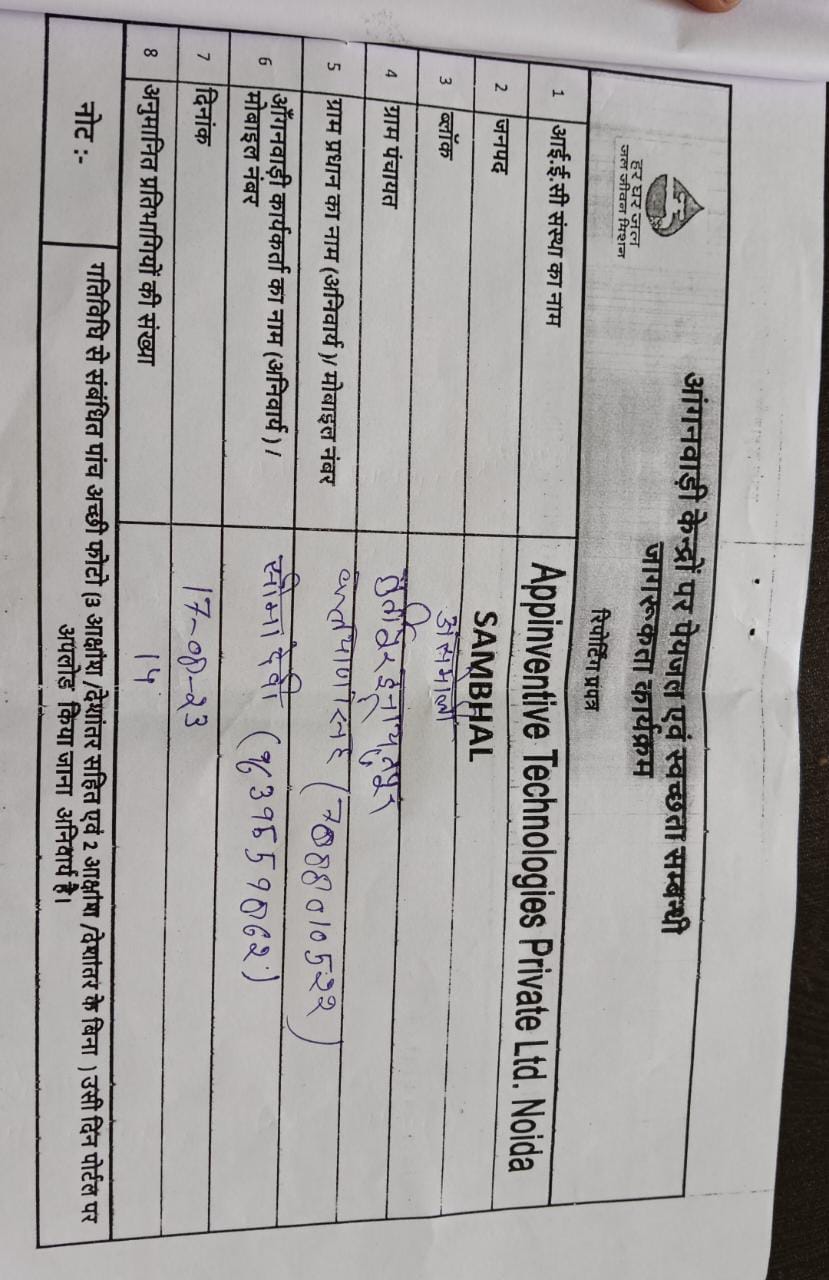 हर घर जल
जल जीवन मिशन
आंगनवाड़ी केन्द्रों पर पेयजल एवं स्वच्छता सम्बन्धी
जागरूकता कार्यक्रम
रिपोर्टिंग प्रपत्र
1 आई.ई.सी संस्था का नाम Appinventive Technologies Private Ltd. Noida
2 जनपद SAMBHAL
3 ब्लॉक असमोली
4 ग्राम पंचायत
5 ग्राम प्रधान का नाम (अनिवार्य)/ मोबाइल नंबर
6 आँगनवाड़ी कार्यकर्ता का नाम (अनिवार्य) / सीमा देवी
मोबाइल नंबर
7 दिनांक 17-08-23
8 अनुमानित प्रतिभागियों की संख्या
नोट :- गतिविधि से संबंधित पांच अच्छी फोटो (3 आक्षांण /देशांतर सहित एवं 2 आक्षांण /देशांतर के बिना ) उसी दिन पोर्टल पर
अपलोड किया जाना अनिवार्य है।